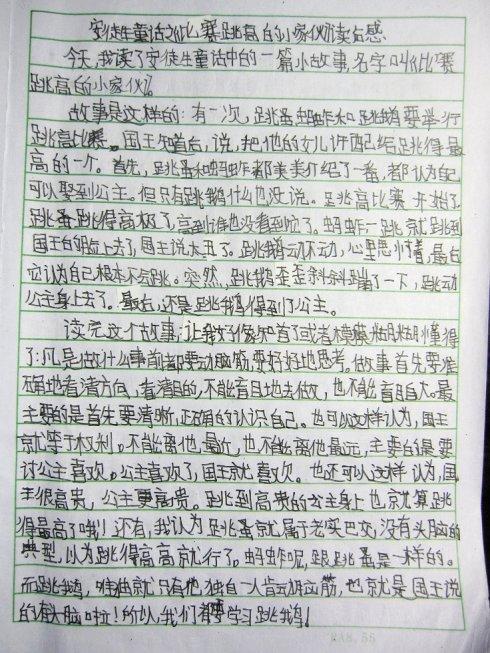 安徒生童话之《比赛跳高的小家伙》读后感
今天,我读了安徒生童话中的一篇小故事,名字叫《比赛
跳高的小家伙》。
故事是这样的:有一次,跳蚤、蚱蜢和跳鹅要举行
跳高比赛。国王知道后,说,把他的女儿许配给跳得最
高的一个。首先,跳蚤和蚱蜢都来美美介绍了一番,都认为自己
可以娶到公主。但只有跳鹅什么也没说。跳高比赛开始了,
跳蚤跳得高极了,高到谁也没看到它了。蚱蜢一跳就跳到
国王的脸上去了,国王说太丑了。跳鹅动也不动,心里思忖着,最后
它认为自己根本不会跳。突然,跳鹅歪歪斜斜蹦了一下,跳动
公主身上去了。最后,还是跳鹅得到了公主。
读完这个故事,让我好像知道了或者模模糊糊懂得
了:凡是做什么事前都要动脑筋,要好好地思考。做事首先要准
确地看清方向,看清目的,不能盲目地去做,也不能盲目自大。最
主要的是首先要清晰,正确的认识自己。也可以这样认为,国王
就等于权利。不能离他最近,也不能离他最远,主要的是要
讨公主喜欢。公主喜欢了,国王就喜欢。也还可以这样认为,国
王很高贵,公主更高贵。跳到高贵的公主身上也就算跳
得最高了哦!还有,我认为跳蚤就属于老实巴交,没有头脑的
典型,以为跳得高高就行了。蚱蜢呢,跟跳蚤是一样的。
而跳鹅,唯独就只有他独自一人肯动脑筋,也就是国王说
的有头脑啦!所以,我们都要学习跳鹅!